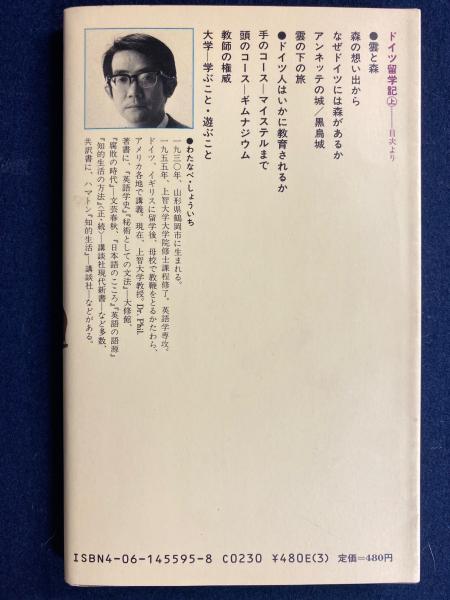 ドイツ留学記(上)……目次より
●雲と森
森の想い出から
なぜドイツには森があるか
アンネッテの城／黒鳥城
雲の下の旅
●ドイツ人はいかに教育されるか
手のコース―マイステルまで
頭のコース―ギムナジウム
教師の権威
大学―学ぶこと・遊ぶこと
●わたなべ・しょういち
一九三〇年、山形県鶴岡市に生まれる。
一九五五年、上智大学大学院修士課程修了。英語学専攻。
ドイツ、イギリスに留学後、母校で教鞭をとるかたわら、
アメリカ各地で講義。現在、上智大学教授。Dr. Phil.
著書に、『英語学史』『秘術としての文法』―大修館、
『腐敗の時代』―文芸春秋、『日本語のこころ』『英語の語源』
『知的生活の方法』〈正・続〉―講談社現代新書―など多数、
共訳書に、ハマトン『知的生活』―講談社―などがある。
ISBN4-06-145595-8 C0230 ¥480E(3) 定価=480円